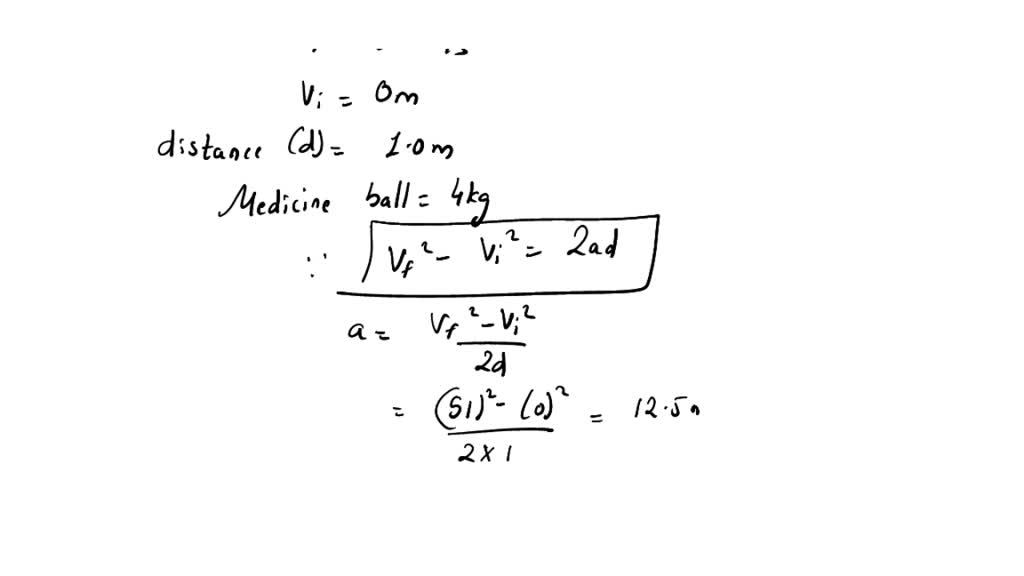 Vi = 0m
distance (d) = 1.0m
Medicine ball = 4kg
∵ Vf² - Vi² = 2ad
a = Vf² - Vi² / 2d
= (51)² - (0)² / 2 x 1 = 12.5